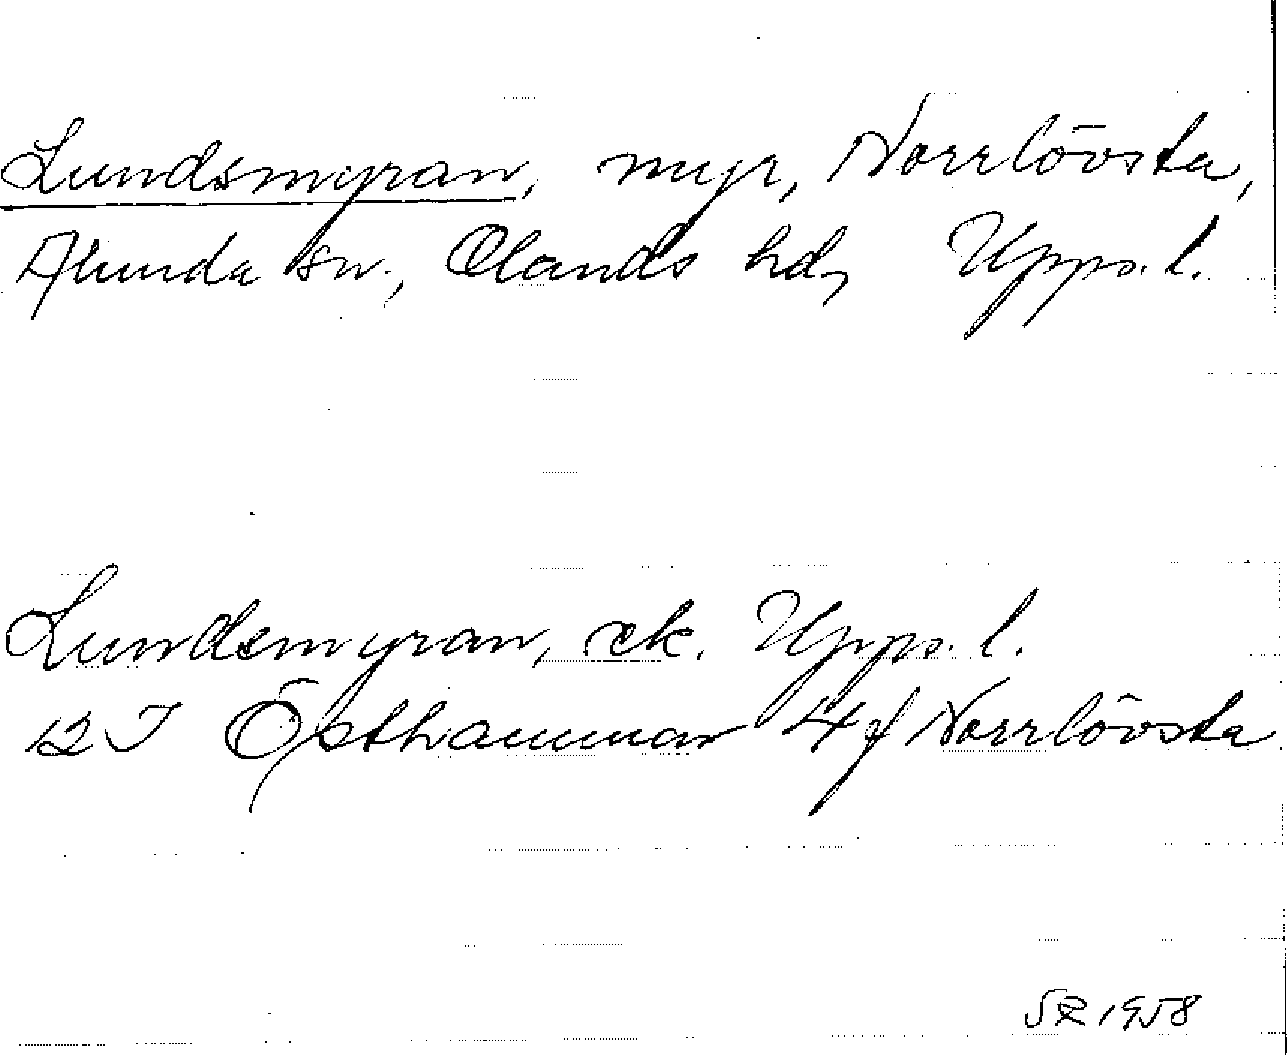 Lundsmyran, myr, Norrlövsta,
Alunda sn., Olands hd, Upps. l.
Lundsmyran, ek. Upps. l.
12 I Östhammar 4 f Norrlövsta
SR 1958